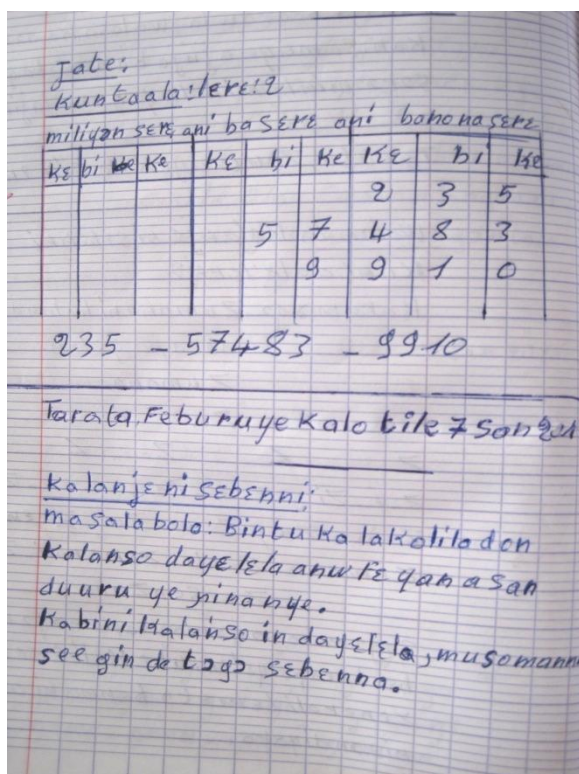 Jate:
Kuntaala: lere: 2
miliyɔn sɛrɛ ani ba sɛrɛ ani banona sɛrɛ
Kɛ bi Ke Kɛ bi Ke Kɛ bi Ke
2 3 5
5 7 4 8 3
9 9 1 0
235 - 57483 - 9910
Tarata, Feburuye Kalo tile 7 San
Kalanjɛ ni sɛbɛnni:
masalabolo: Bintu ka lakolila don
Kalanso dayɛlɛla anw fɛ yan a san
duuru ye ɲinan ye.
Kabini kalanso in dayɛlɛla, musomann
see gin de tɔgɔ sɛbɛnna.